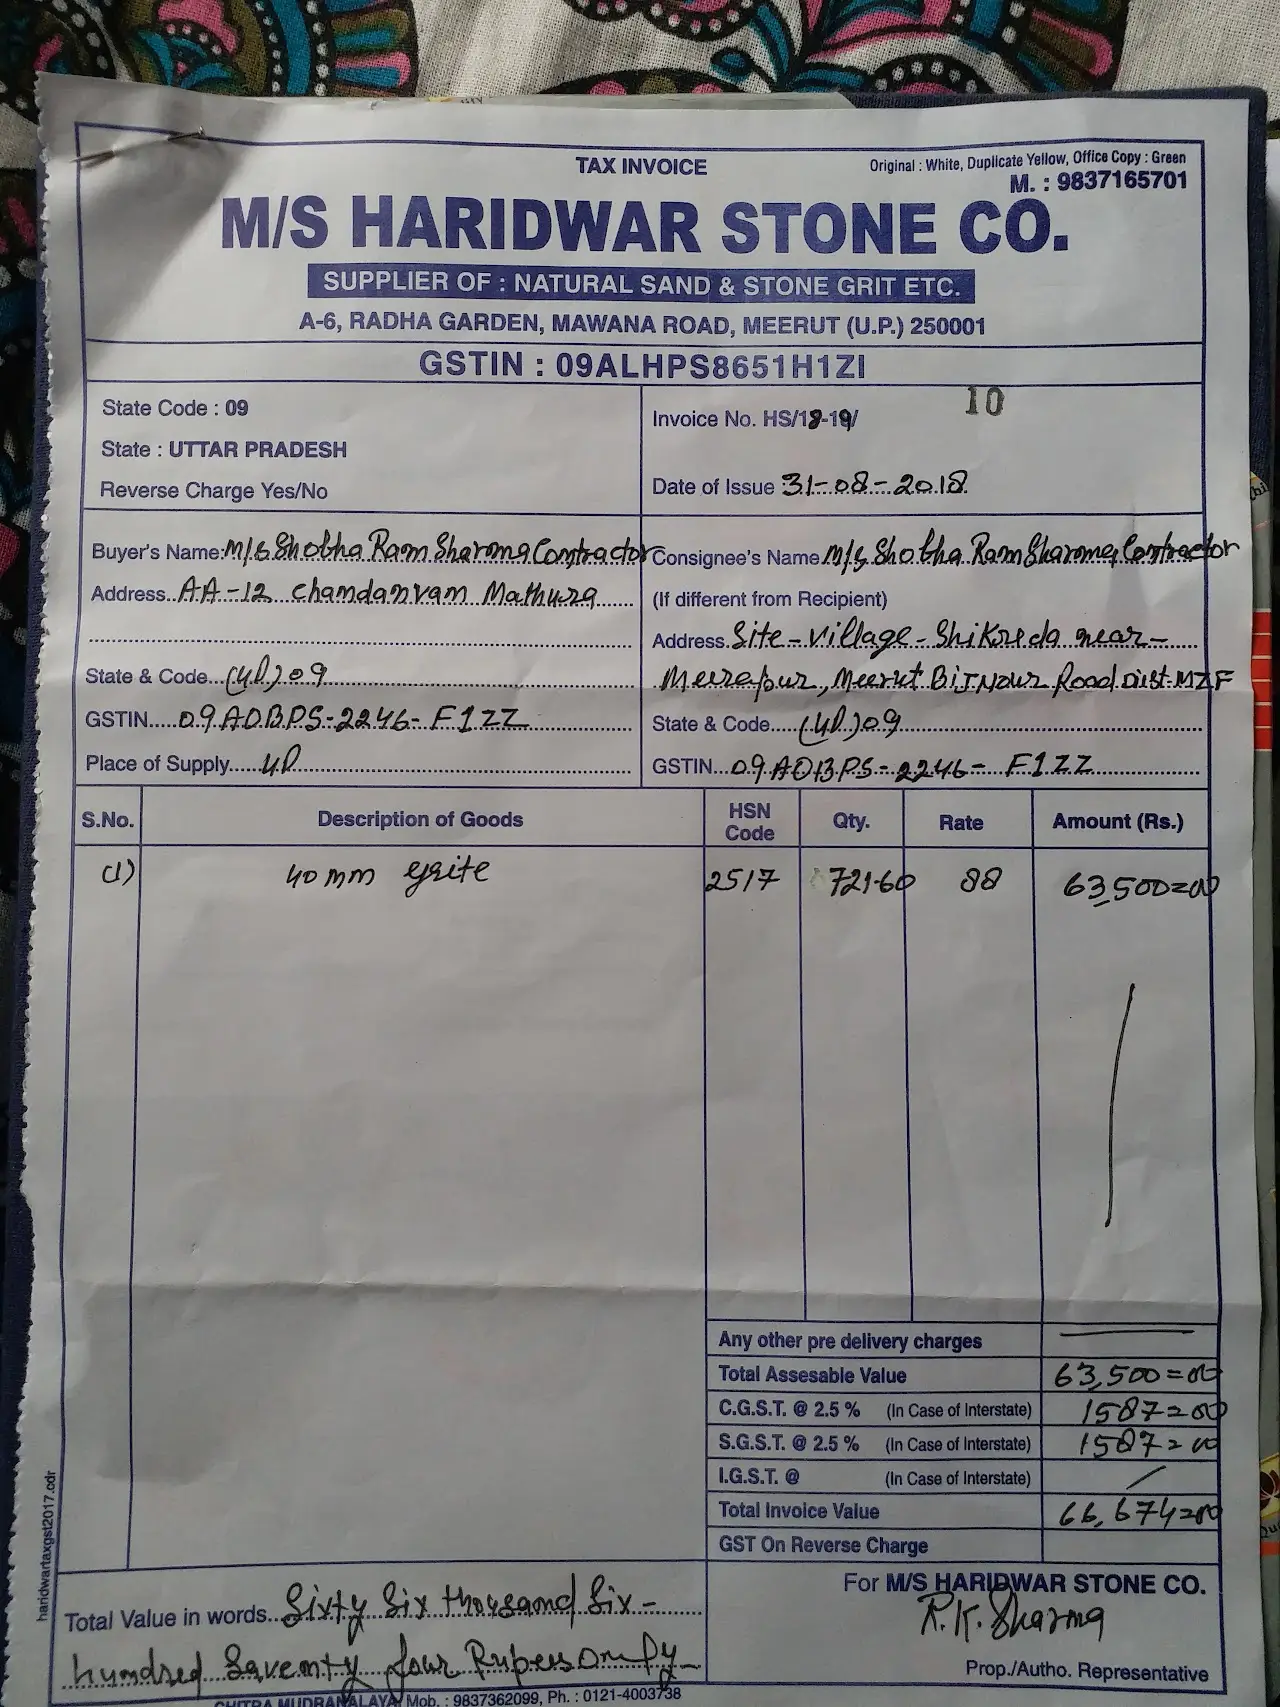 TAX INVOICE
Original : White, Duplicate Yellow, Office Copy : Green
M. : 9837165701
M/S HARIDWAR STONE CO.
SUPPLIER OF : NATURAL SAND & STONE GRIT ETC.
A-6, RADHA GARDEN, MAWANA ROAD, MEERUT (U.P.) 250001
GSTIN : 09ALHPS8651H1ZI
State Code : 09
State : UTTAR PRADESH
Reverse Charge Yes/No
Invoice No. HS/18-19/ 10
Date of Issue 31-08-2018
Buyer's Name: M/s Shobha Ram Sharma Contractor
Address AA-12 Chamdanvam Mathura
State & Code (UP) 09
GSTIN 09AOBPS-2246-F1ZZ
Place of Supply UP
Consignee's Name M/s Shobha Ram Sharma Contractor
(If different from Recipient)
Address Site-Village-Shikreda near-
Meerapur, Meerut Bijnour Road Dist. MZF
State & Code (UP) 09
GSTIN 09AOBPS-2246-F1ZZ
S.No. Description of Goods HSN Code Qty. Rate Amount (Rs.)
(1) 40mm grite 2517 721.60 88 63,500=00
Any other pre delivery charges
Total Assesable Value 63,500=00
C.G.S.T. @ 2.5 % (In Case of Interstate) 1587=00
S.G.S.T. @ 2.5 % (In Case of Interstate) 1587=00
I.G.S.T. @ (In Case of Interstate)
Total Invoice Value 66,674=00
GST On Reverse Charge
Total Value in words Sixty Six thousand Six-
hundred Saventy four Rupees Omly
For M/S HARIDWAR STONE CO.
R.K. Sharma
Prop./Autho. Representative
CHITRA MUDRANALAYA, Mob. : 9837362099, Ph. : 0121-4003738
haridwartaxgst2017.cdr